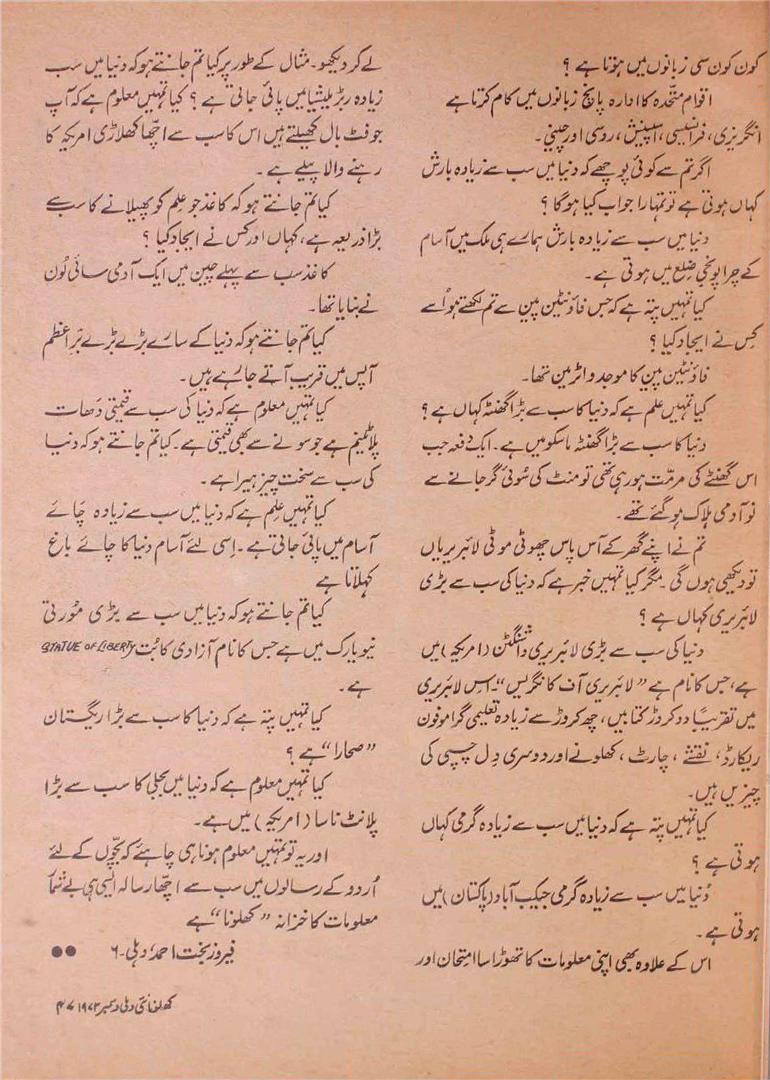 کون کون سی زبانوں میں ہوتا ہے ؟
اقوام متحدہ کا ادارہ پانچ زبانوں میں کام کرتا ہے
انگریزی، فرانسیسی، اسپینش، روسی اور چینی۔
اگر تم سے کوئی پوچھے کہ دنیا میں سب سے زیادہ بارش
کہاں ہوتی ہے تو تمہارا جواب کیا ہوگا ؟
دنیا میں سب سے زیادہ بارش ہمارے ہی ملک میں آسام
کے چراپونجی ضلع میں ہوتی ہے۔
کیا تمہیں پتہ ہے کہ جس فاؤنٹین پین سے تم لکھتے ہو اُسے
کس نے ایجاد کیا ؟
فاؤنٹین پین کا موجد واٹرمین تھا۔
کیا تمہیں علم ہے کہ دنیا کا سب سے بڑا گھنٹہ کہاں ہے ؟
دنیا کا سب سے بڑا گھنٹہ ماسکو میں ہے۔ ایک دفعہ جب
اس گھنٹے کی مرمّت ہو رہی تھی تو منٹ کی سُوئی گر جانے سے
نو آدمی ہلاک ہو گئے تھے۔
تم نے اپنے گھر کے آس پاس چھوٹی موٹی لائبریریاں
تو دیکھی ہوں گی۔ مگر کیا تمہیں خبر ہے کہ دنیا کی سب سے بڑی
لائبریری کہاں ہے ؟
دنیا کی سب سے بڑی لائبریری واشنگٹن (امریکہ) میں
ہے، جس کا نام ہے ”لائبریری آف کانگریس“۔ اس لائبریری
میں تقریباً دو کروڑ کتابیں، چھ کروڑ سے زیادہ تعلیمی گراموفون
ریکارڈ، نقشے، چارٹ، کھلونے اور دوسری دل چسپی کی
چیزیں ہیں۔
کیا تمہیں پتہ ہے کہ دنیا میں سب سے زیادہ گرمی کہاں
ہوتی ہے ؟
دُنیا میں سب سے زیادہ گرمی جیکب آباد (پاکستان) میں
ہوتی ہے۔
اس کے علاوہ بھی اپنی معلومات کا تھوڑا سا امتحان اور
لے کر دیکھو۔ مثال کے طور پر کیا تم جانتے ہو کہ دنیا میں سب
زیادہ ربڑ ملیشیا میں پائی جاتی ہے ؟ کیا تمہیں معلوم ہے کہ آپ
جو فٹ بال کھیلتے ہیں اس کا سب سے اچھا کھلاڑی امریکہ کا
رہنے والا پیلے ہے۔
کیا تم جانتے ہو کہ کاغذ جو علم کو پھیلانے کا سب سے
بڑا ذریعہ ہے، کہاں اور کس نے ایجاد کیا ؟
کاغذ سب سے پہلے چین میں ایک آدمی سائی لُون
نے بنایا تھا۔
کیا تم جانتے ہو کہ دنیا کے سارے بڑے بڑے برِاعظم
آپس میں قریب آتے جا رہے ہیں۔
کیا تمہیں معلوم ہے کہ دنیا کی سب سے قیمتی دَھات
پلاٹینم ہے جو سونے سے بھی قیمتی ہے۔ کیا تم جانتے ہو کہ دنیا
کی سب سے سخت چیز ہیرا ہے۔
کیا تمہیں علم ہے کہ دنیا میں سب سے زیادہ چائے
آسام میں پائی جاتی ہے۔ اِسی لئے آسام دنیا کا چائے باغ
کہلاتا ہے
کیا تم جانتے ہو کہ دنیا میں سب سے بڑی مُورتی
نیویارک میں ہے جس کا نام آزادی کا بُت (STATUE OF LIBERTY
ہے۔
کیا تمہیں پتہ ہے کہ دنیا کا سب سے بڑا ریگستان
”صحارا“ ہے ؟
کیا تمہیں معلوم ہے کہ دنیا میں بجلی کا سب سے بڑا
پلانٹ ناسا (امریکہ) میں ہے۔
اور یہ تو تمہیں معلوم ہونا ہی چاہئے کہ بچّوں کے لئے
اُردو کے رسالوں میں سب سے اچھا رسالہ ایسی ہی بے شمار
معلومات کا خزانہ ”کھلونا“ ہے
فیروز بخت احمد، دہلی۔۶
کھلونا نئی دہلی دسمبر ۱۹۷۳ ۴۷